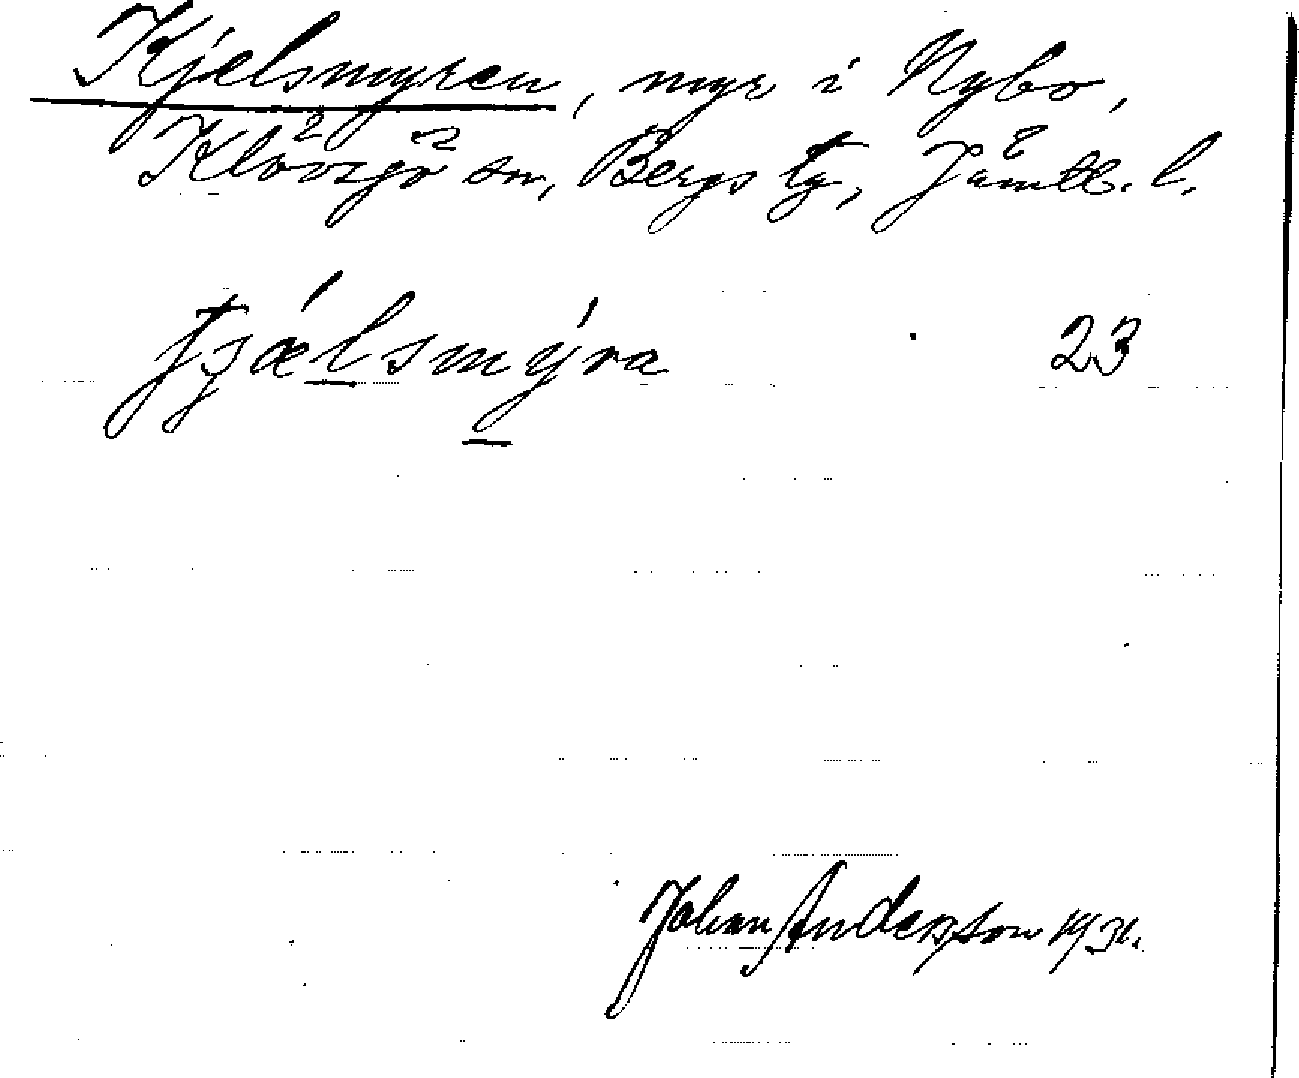 Kjælsmyren, myr i Nybo,
Klövsjö sn, Bergs tg, Jämtl. l.
tjǽlsmýra 23
Johan Anderson 1931.